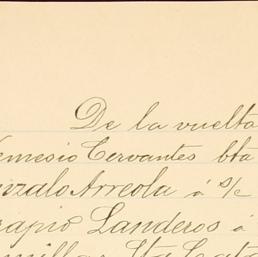 De la vuelta
Nemesio Cervantes bta
nzalo Arreola á s/c
rapio Landeros á